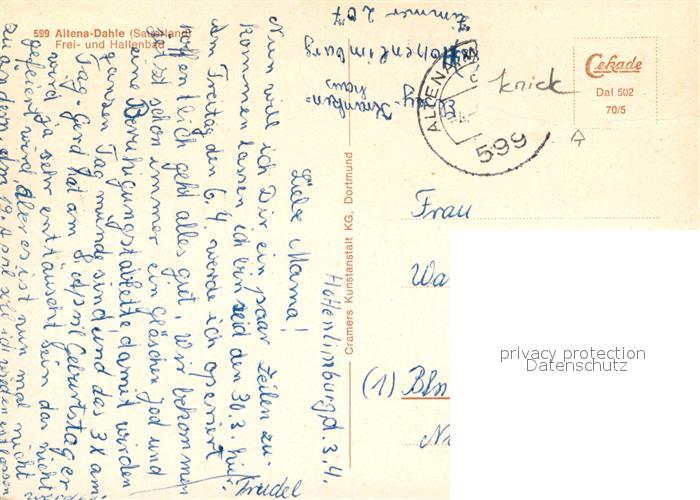 599 Altena-Dahle (Sauerland)
Frei- und Hallenbad
Hohenlimburg, d. 3.4.
Liebe Mama!
Nun will ich Dir ein paar Zeilen zu-
kommen lassen ich bin seid den 30.3. hier
Am Freitag den 6.4. werde ich operiert
hoffentlich geht alles gut, Wir bekommen
jetzt schon immer ein gläschen Jod und
eine Beruhigungstablette damit wir den
ganzen Tag müde sind und das 3x am
Tag. Gerd hat am 8. April Geburtstag er
wird ja sehr enttäuscht sein das nicht
gefeiert wird, aber es ist nun mal nicht
zu ändern am 19 April soll ich
Trudel
Kranken-
haus
Hohenlimburg
Zimmer 207
ALTENA
599
knick
Cekade
Dal 502
70/5
Cramers Kunstanstalt KG, Dortmund
Frau
Wa
(1) Bln
privacy protection
Datenschutz